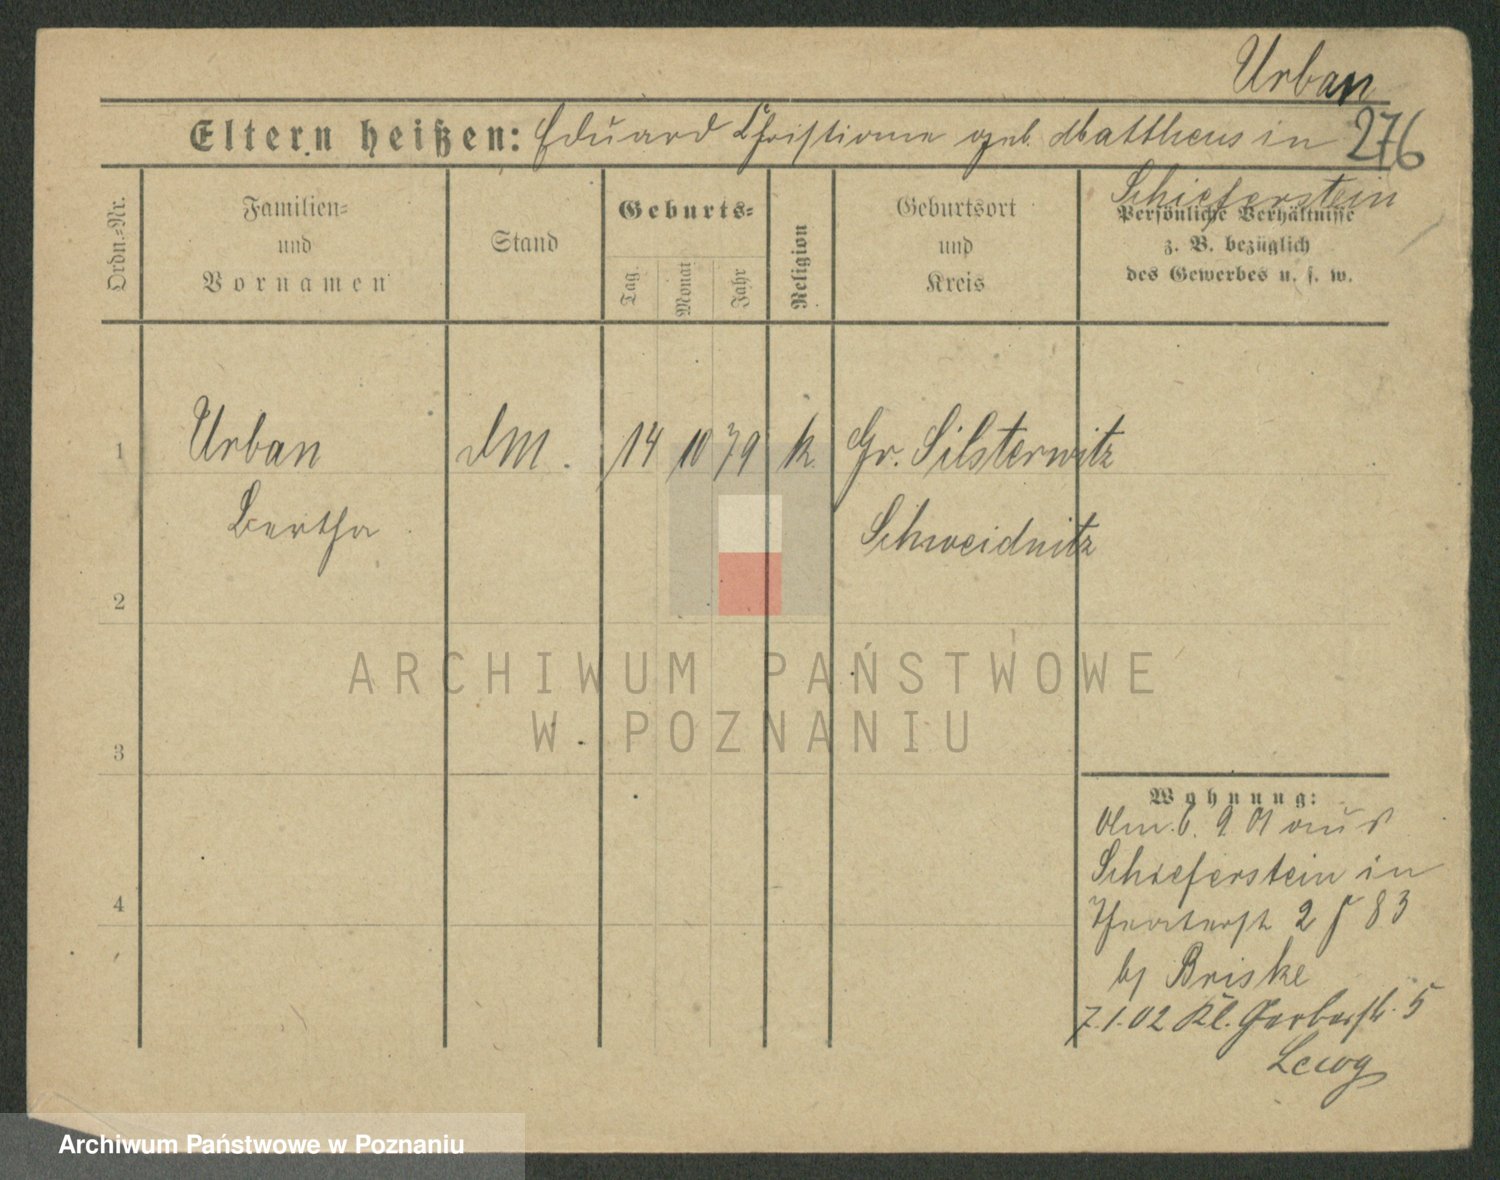 Urban
Eltern heißen: Eduard Christiane geb. Mattheus in 276
Schieferstein
Ordn.-Nr.
Familien-
und
Vornamen
Stand
Geburts-
Tag
Monat
Jahr
Religion
Geburtsort
und
Kreis
Persönliche Verhältnisse
z. B. bezüglich
des Gewerbes u. s. w.
1 Urban 14 10 79 k. Gr. Silsterwitz
Bertha Schweidnitz
2
3
4
ARCHIWUM PAŃSTWOWE
W POZNANIU
Wohnung:
6. 9 01 aus
Schieferstein in
Theaterst 2 83
bj Briske
7.1.02 Kl. Gerberstr. 5
Archiwum Państwowe w Poznaniu